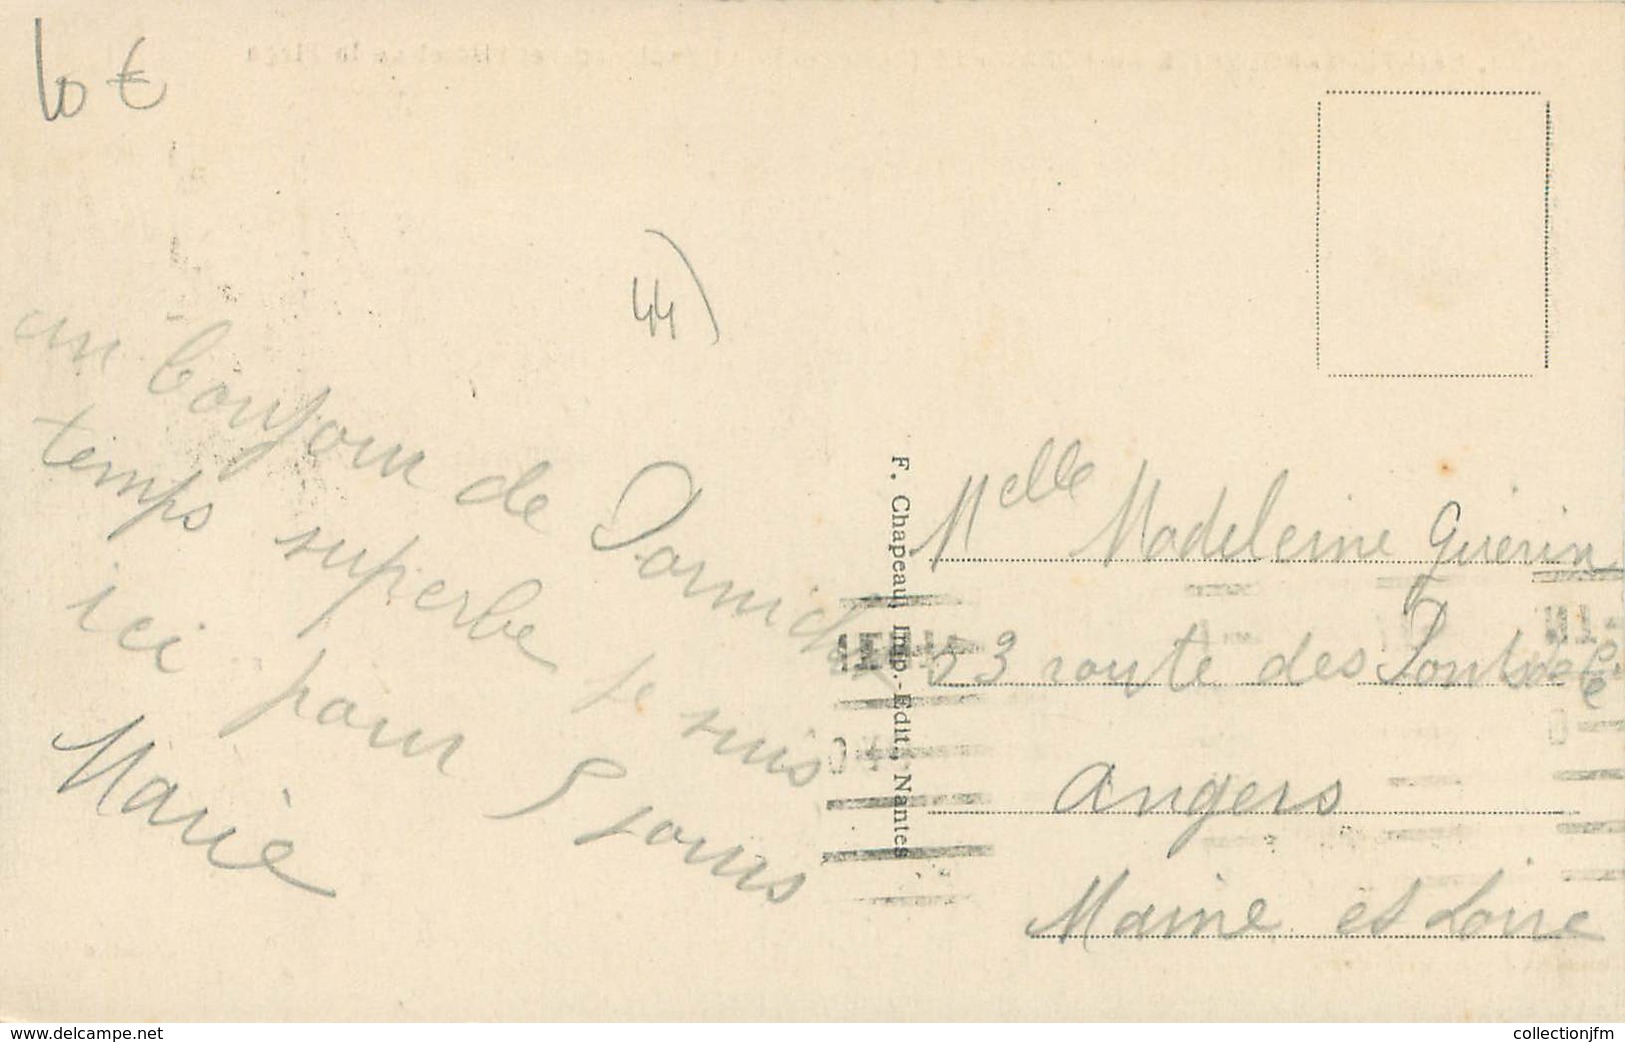 10 €
44)
un bonjour de Pornichet
temps superbe je suis
ici pour 5 jours
Marie
F. Chapeau, Imp.-Edit., Nantes
Melle Madeleine Guérin
53 route des Ponts de Cé
Angers
Maine et Loire
www.delcampe.net
collectionjfm